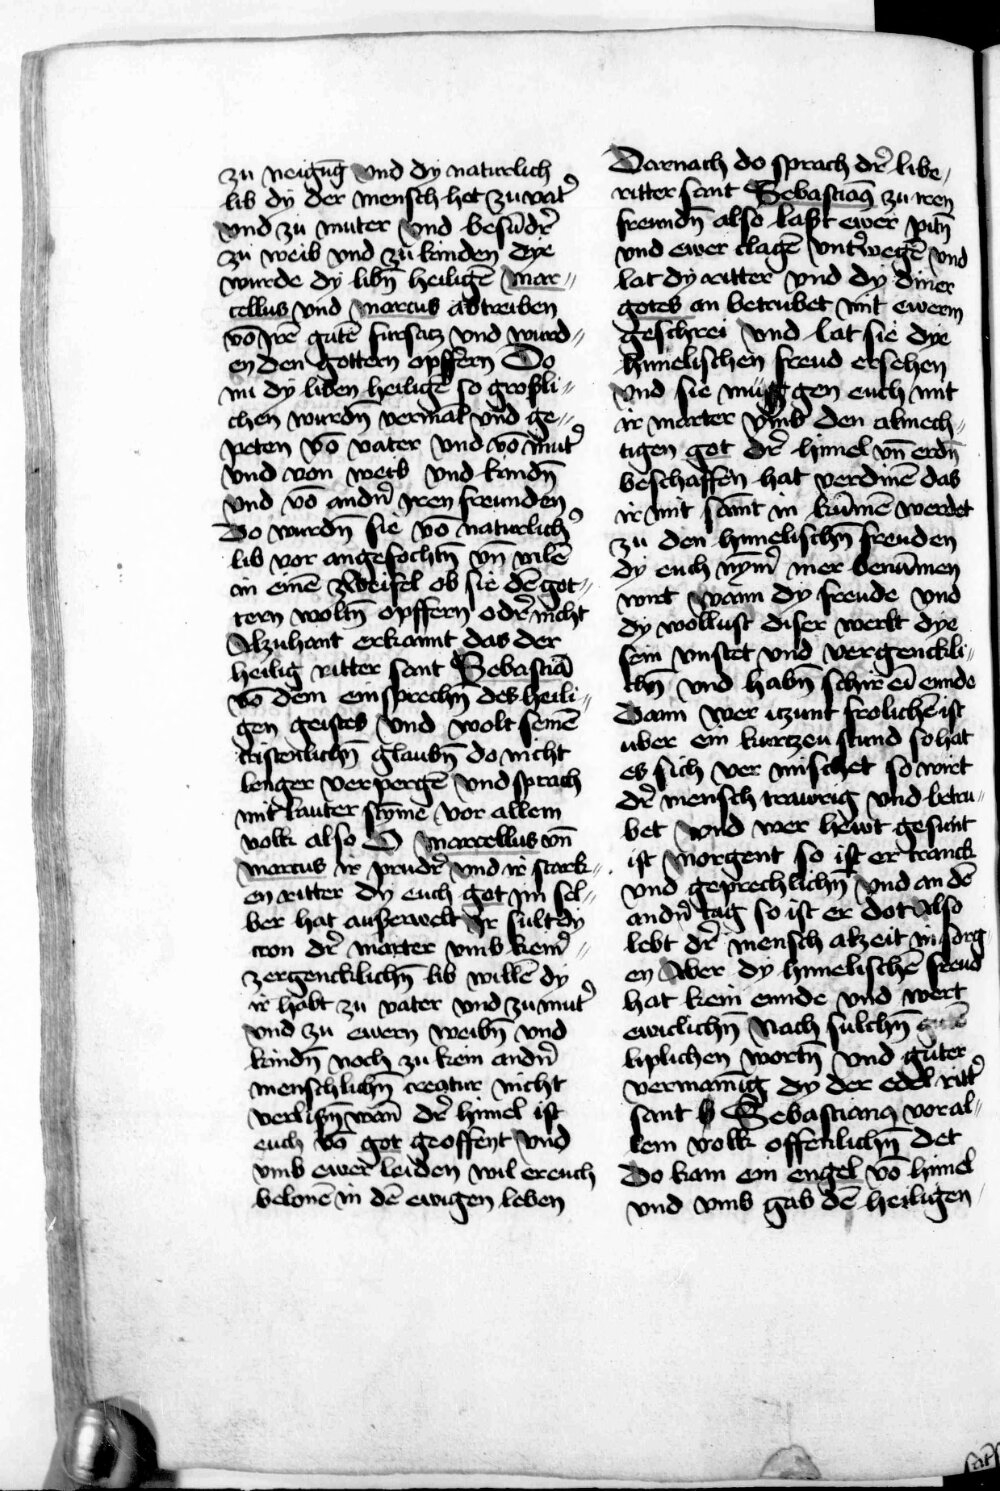 zu neigūg vnd dy naturlich
lib dy der mensch het zu vat'
vnd zu muter vnd besūdr̄
zu weib vnd zu kinden dye
wurde dy libn̄ heiligē mar-
cellus vnd marcus abtreiben
vō irē gutē fursatz vnd wurd-
en den gottern opffern Do
nu dy liben heiligē so großli-
chen wurdn̄ vermāt vnd ge-
peten vō vater vnd vō mut'
vnd von weib vnd kindn̄
vnd vō andn̄ iren freunden
Do wurdn̄ sie vō naturlich'
lib vor angefochtn̄ vn̄ vilē
in einē zweifel ob sie dē got-
tern woltn̄ opffern odr̄ nicht
Alzuhant erkannt das der
heilig ritter sant Sebastiā
vō dem einsprechn̄ des heili-
gen geistes vnd wolt seinē
cristenlichn̄ glaubn̄ do nicht
lenger verpergē vnd sprach
mit lauter stȳme vor allem
volk also O marcellus vn̄
marcus ir prudr̄ vnd ir starck-
en ritter dy euch got im sel-
ber hat außerwelt Ir sult dy
cron dr̄ marter vmb keinr̄
zergencklichn̄ lib willē dy
ir habt zu vater vnd zu mut'
vnd zu ewern weibn̄ vnd
kindn̄ noch zu kein andn̄
menschlichn̄ creatur nicht
verlisn̄ wān dr̄ himel ist
euch vō got geoffent vnd
vmb ewer leiden wil er euch
belonē in dē ewigen leben
Darnach do sprach dr̄ libe
ritter sant Sebastian9 zu iren
freundn̄ also laßt ewer pitn̄
vnd ewer clagē vnt'wegē vnd
lat dy ritter vnd dy diner
gotes an betrubet mit ewerm
geschrei vnd lat sie dye
himelischen freud ersehen
vnd sie mugen euch mit
ir marter vmb den almech-
tigen got dr̄ himel vn̄ erdn̄
beschaffen hat verdinē das
ir mit sāmt in kūmē werdet
zu den himelischn̄ freuden
dy euch nym̄' mer benūmen
wirt wann dy freude vnd
dy wollust diser werlt dye
sein vnstet vnd vergenckli-
chn̄ vnd habn̄ schir eī ennde
Dann wer itzunt frolichē ist
uber ein kurtzeu stund so hat
es sich ver mischet so wirt
dr̄ mensch trawrig vnd betru-
bet vnd wer hewt gesunt
ist morgent so ist er kranck
vnd geprechlichn̄ vnd an dē
andn̄ tag so ist er dot Also
lebt dr̄ mensch alzeit in sorg
en Aber dy himelischē freud
hat kein ennde vnd wert
ewiclichn̄ Nach sulchn̄
liplichen wortn̄ vnd guter
vermanūg dy der edel ritt'
sant Sebastian9 vor al-
lem volk offenlichn̄ det
Do kam ein engel vō himel
vnd vmb gab dē heiligen